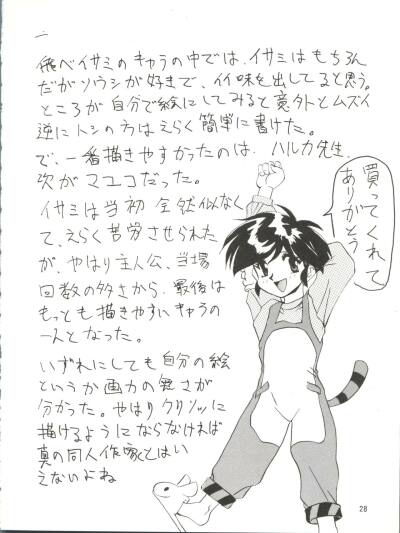 飛べイサミのキャラの中では、イサミはもちろん
だがソウシが好きで、イイ味を出してると思う。
ところが自分で絵にしてみると意外とムズイ
逆にトシの方はえらく簡単に書けた。
で、一番描きやすかったのは、ハルカ先生、
次がマユコだった。
イサミは当初全然似なく
て、えらく苦労させられた
が、やはり主人公、登場
回数の多さから、最後は
もっとも描きやすいキャラの
一人となった。
いずれにしても自分の絵
というか画力の無さが
分かった。やはりクリソツに
描けるようにならなければ
真の同人作家とはい
えないよね
買ってくれて
ありがとう
28